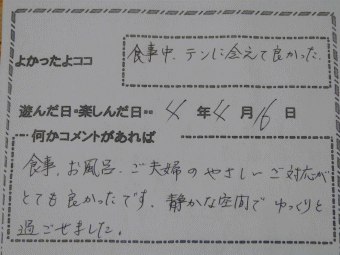 よかったよココ
食事中、テンに会えて良かった。
遊んだ日・楽しんだ日… 4 年 4 月 16 日
何かコメントがあれば
食事、お風呂、ご夫婦のやさしいご対応が
とても良かったです。静かな空間でゆっくりと
過ごせました。